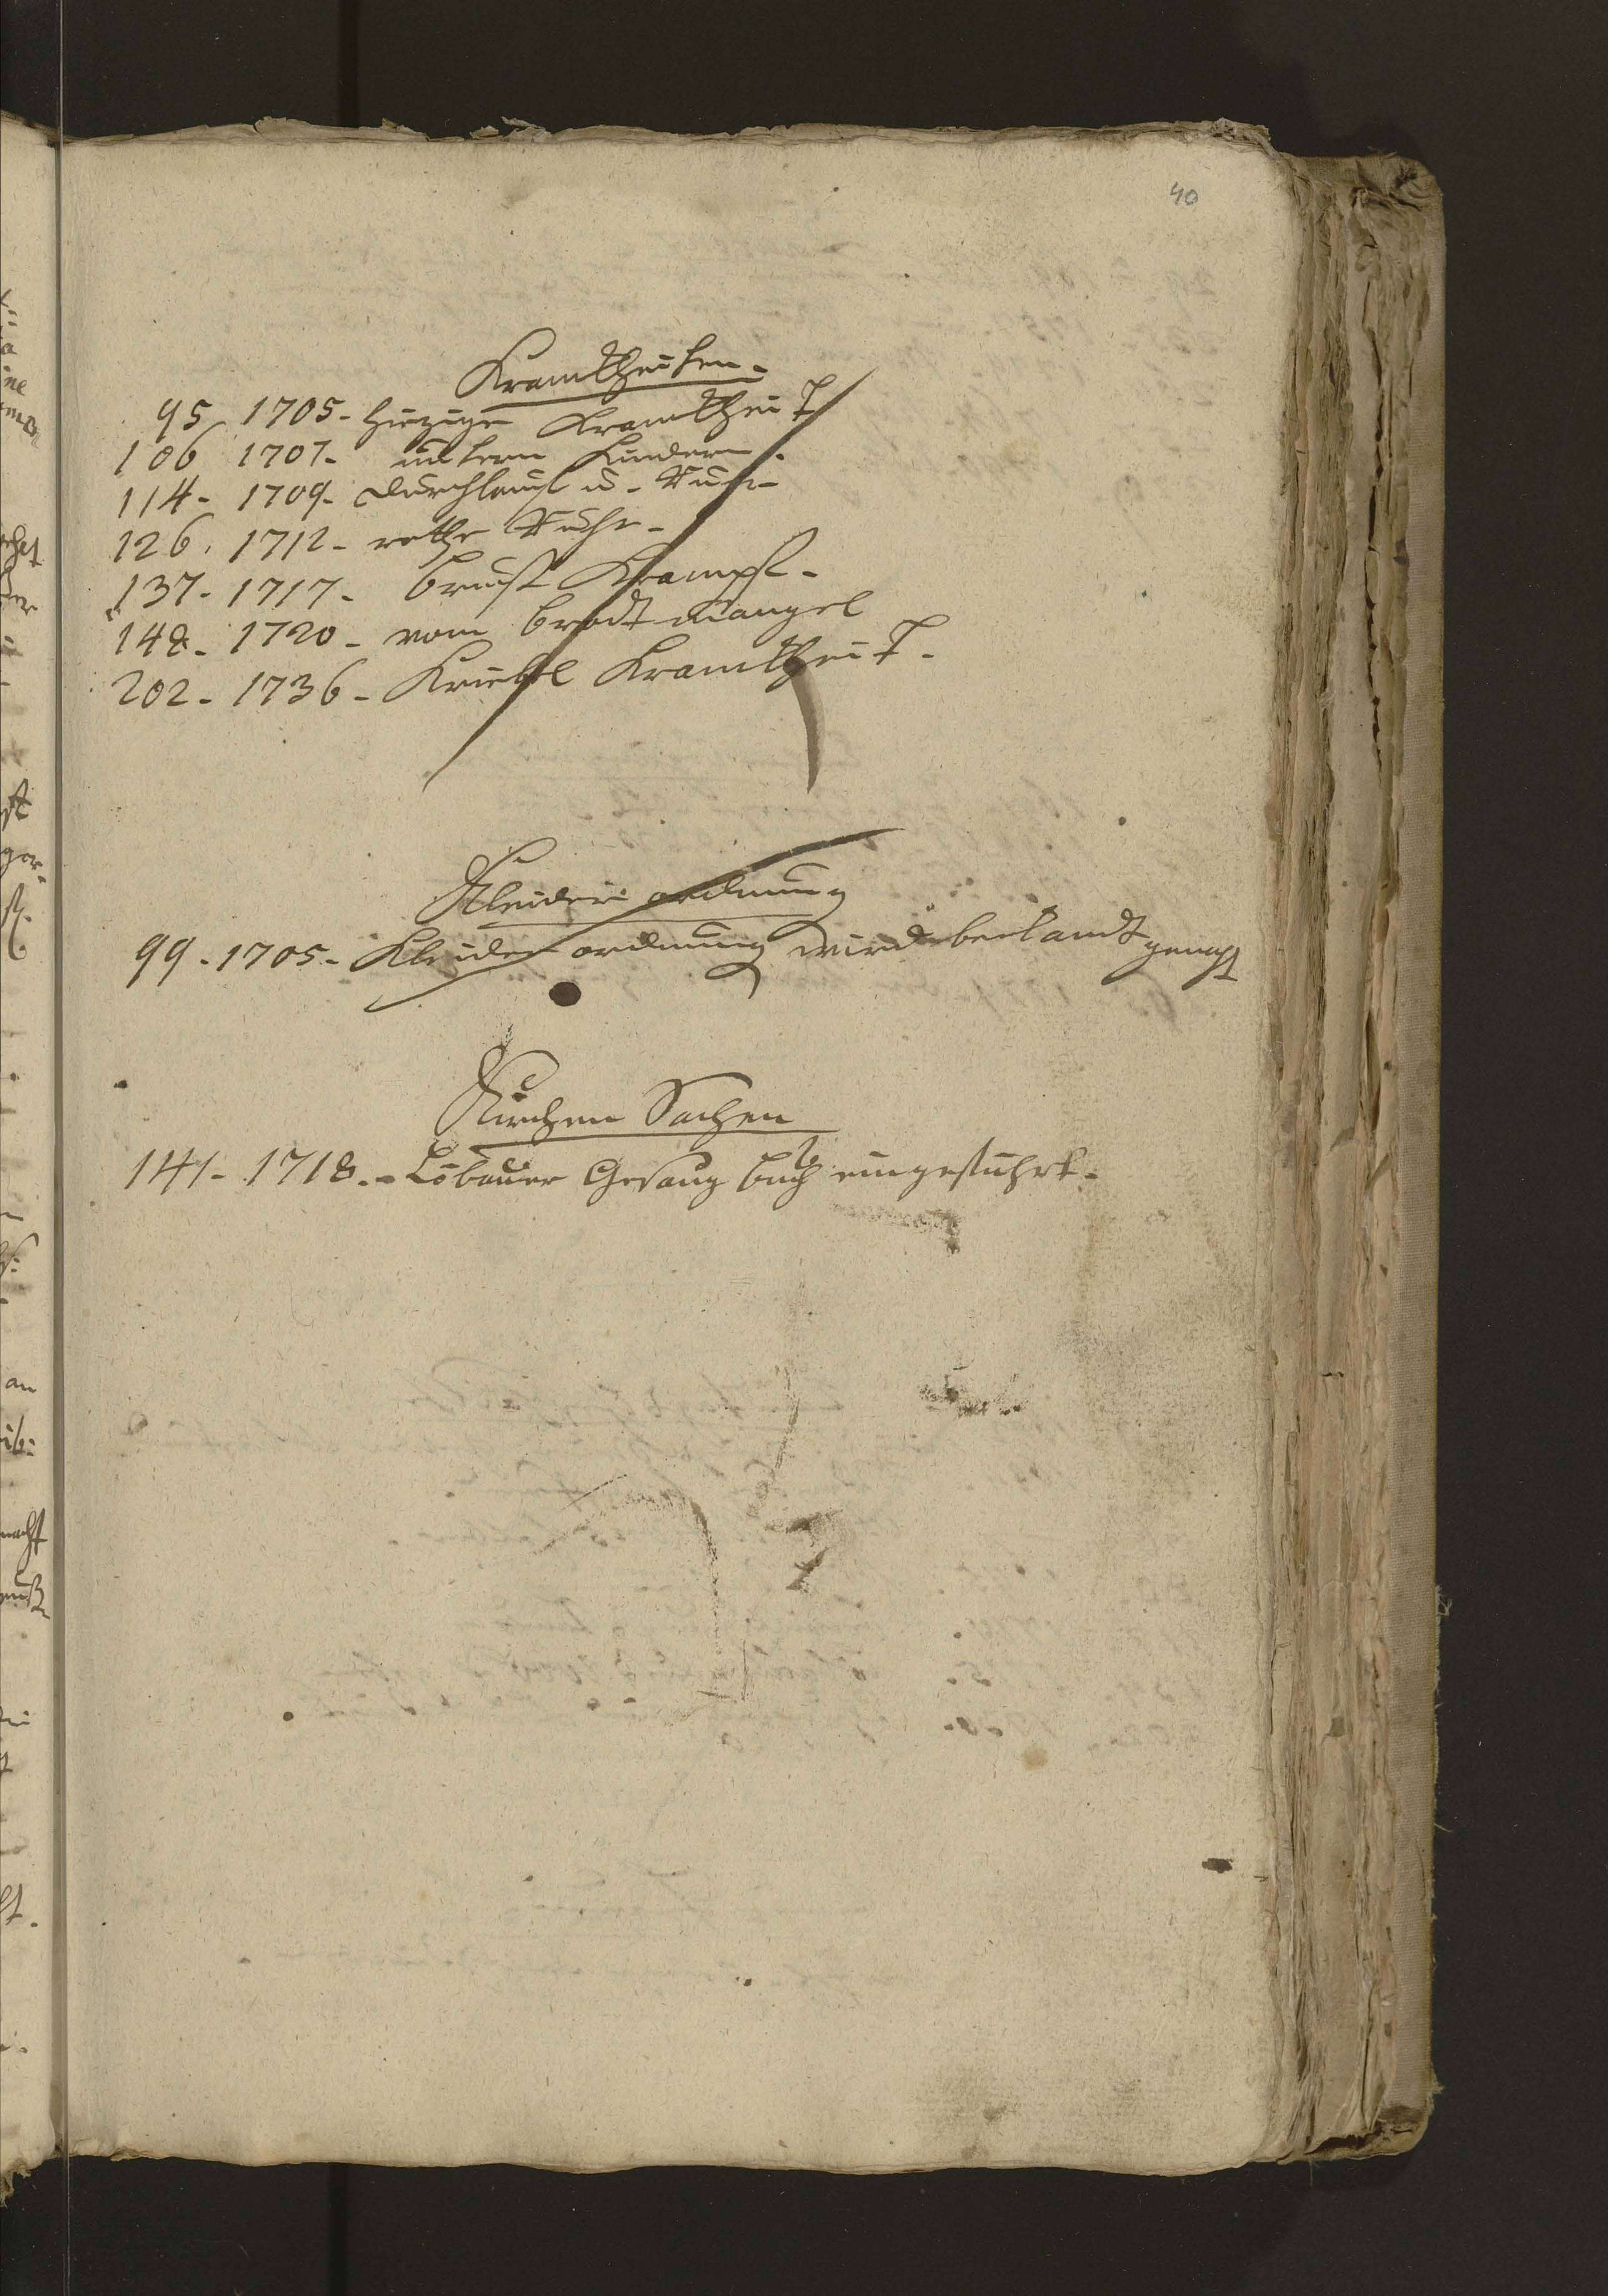 40
Kranckheiten.
95 1705. hitzige Kranckheit
106 1707. unter Kindern.
114. 1709. Durchlauf u. Ruhr
126. 1712. rothe Ruhr.
137. 1717. brust Krampf.
148. 1720. vom brodt mangel
202. 1736. Kriebel Kranckheit.
Kleider ordnung
99. 1705. Kleider ordnung wird bekandt gemacht
Kirchen Sachen
141. 1718. Löbauer Gesang buch eingeführt.